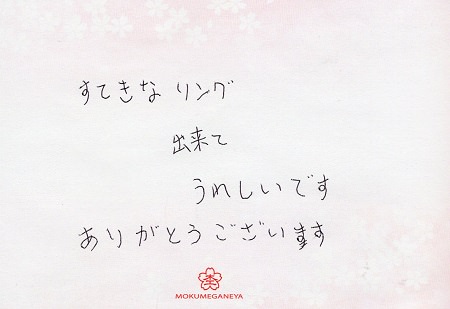 すてきな リング
出来て
うれしいです
ありがとうございます
杢
MOKUMEGANEYA